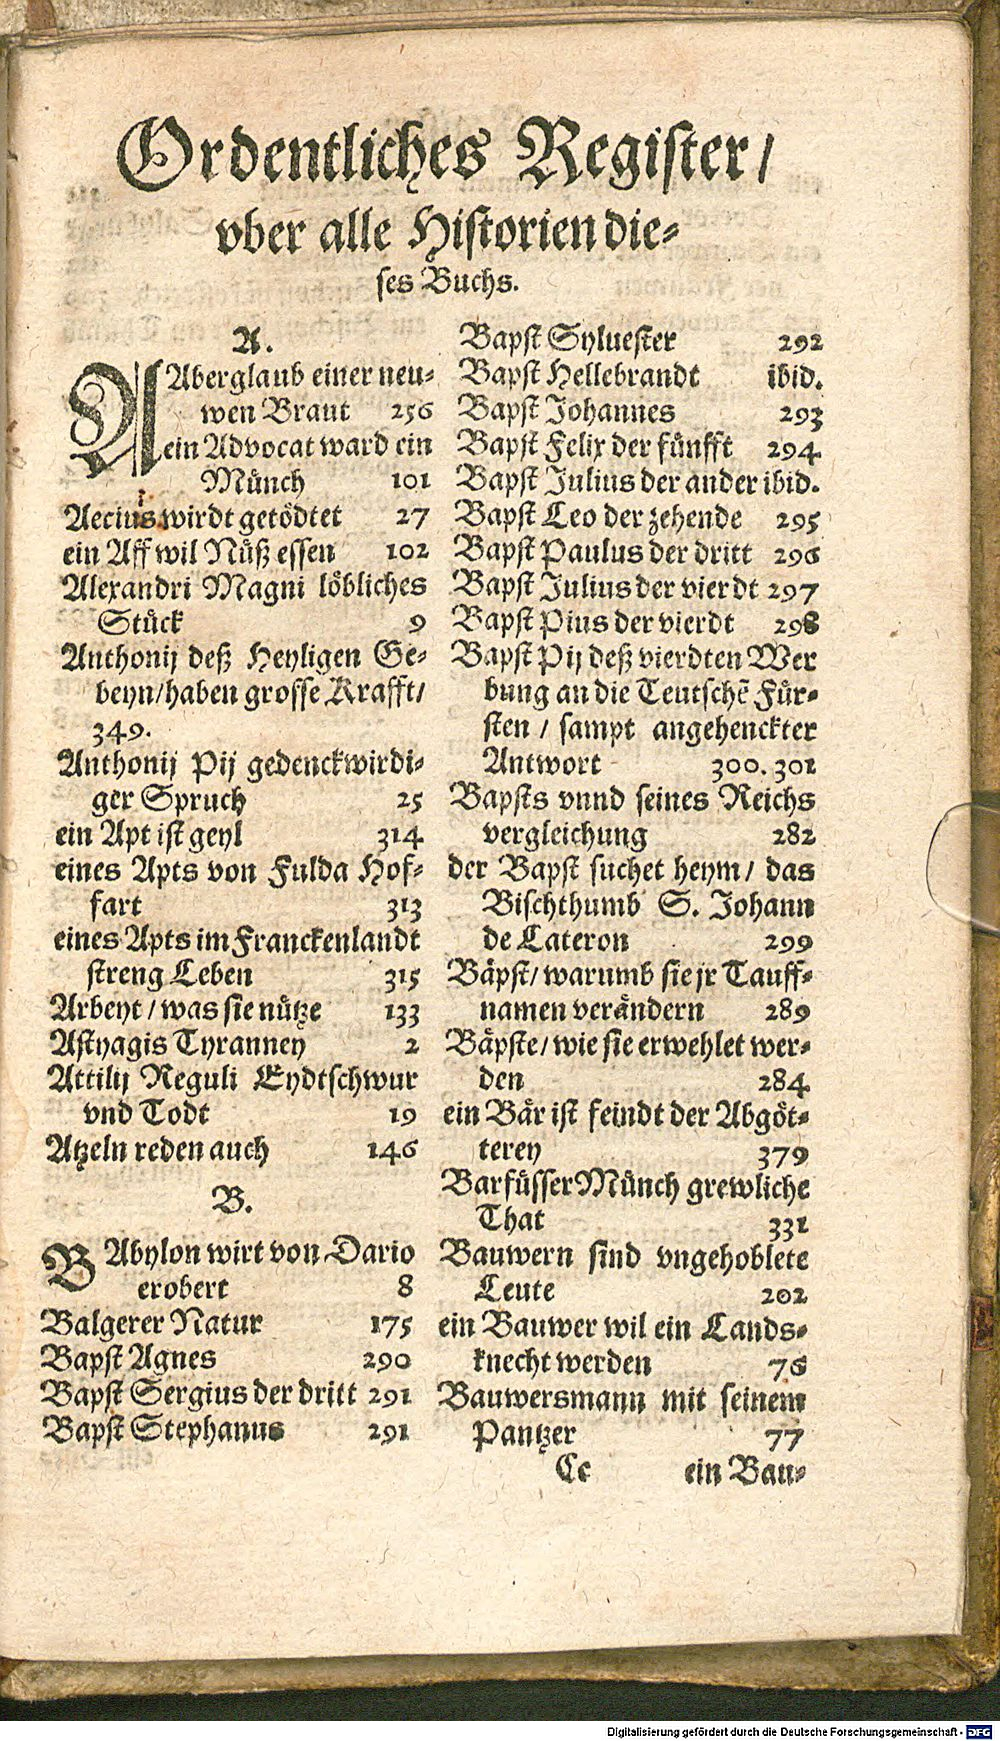 Ordentliches Register/
vber alle Historien die-
ses Buchs.
A.
AAberglaub einer neu-
wen Braut 256
ein Advocat ward ein
Münch 101
Aecius wirdt getödtet 27
ein Aff wil Nüß essen 102
Alexandri Magni löbliches
Stück 9
Anthonij deß Heyligen Ge-
beyn/haben grosse Krafft/
349.
Anthonij Pij gedenckwirdi-
ger Spruch 25
ein Apt ist geyl 314
eines Apts von Fulda Hof-
fart 313
eines Apts im Franckenlandt
streng Leben 315
Arbeyt/was sie nütze 133
Astyagis Tyranney 2
Attilij Reguli Eydtschwur
vnd Todt 19
Atzeln reden auch 146
B.
BAbylon wirt von Dario
erobert 8
Balgerer Natur 175
Bapst Agnes 290
Bapst Sergius der dritt 291
Bapst Stephanus 291
Bapst Sylvester 292
Bapst Hellebrandt ibid.
Bapst Johannes 293
Bapst Felix der fünfft 294
Bapst Julius der ander ibid.
Bapst Leo der zehende 295
Bapst Paulus der dritt 296
Bapst Julius der vierdt 297
Bapst Pius der vierdt 298
Bapst Pij deß vierdten Wer
bung an die Teutschẽ Für-
sten/ sampt angehenckter
Antwort 300.301
Bapsts vnnd seines Reichs
vergleichung 282
der Bapst suchet heym/ das
Bischthumb S. Johann
de Lateron 299
Bäpst/warumb sie jr Tauff-
namen verändern 289
Bäpste/wie sie erwehlet wer-
den 284
ein Bär ist feindt der Abgöt-
terey 379
Barfüsser Münch grewliche
That 331
Bauwern sind vngehoblete
Leute 202
ein Bauwer wil ein Lands-
knecht werden 76
Bauwersmann mit seinem
Pantzer 77
Cc ein Bau-
Digitalisierung gefördert durch die Deutsche Forschungsgemeinschaft - DFG